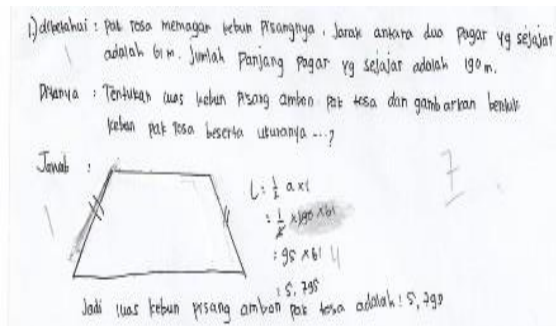 1.) diketahui : pak Tosa memagar kebun pisangnya. Jarak antara dua pagar yg sejajar
adalah 61 m. Jumlah panjang pagar yg sejajar adalah 190 m.
Ditanya : Tentukan luas kebun pisang ambon pak tosa dan gambarkan bentuk
kebun pak Tosa beserta ukuranya ...?
Jawab :
L : 1/2 a x t
: 1/2 x 190 x 61
: 95 x 61
: 5.795
7
Jadi luas kebun pisang ambon pak tosa adalah : 5,790